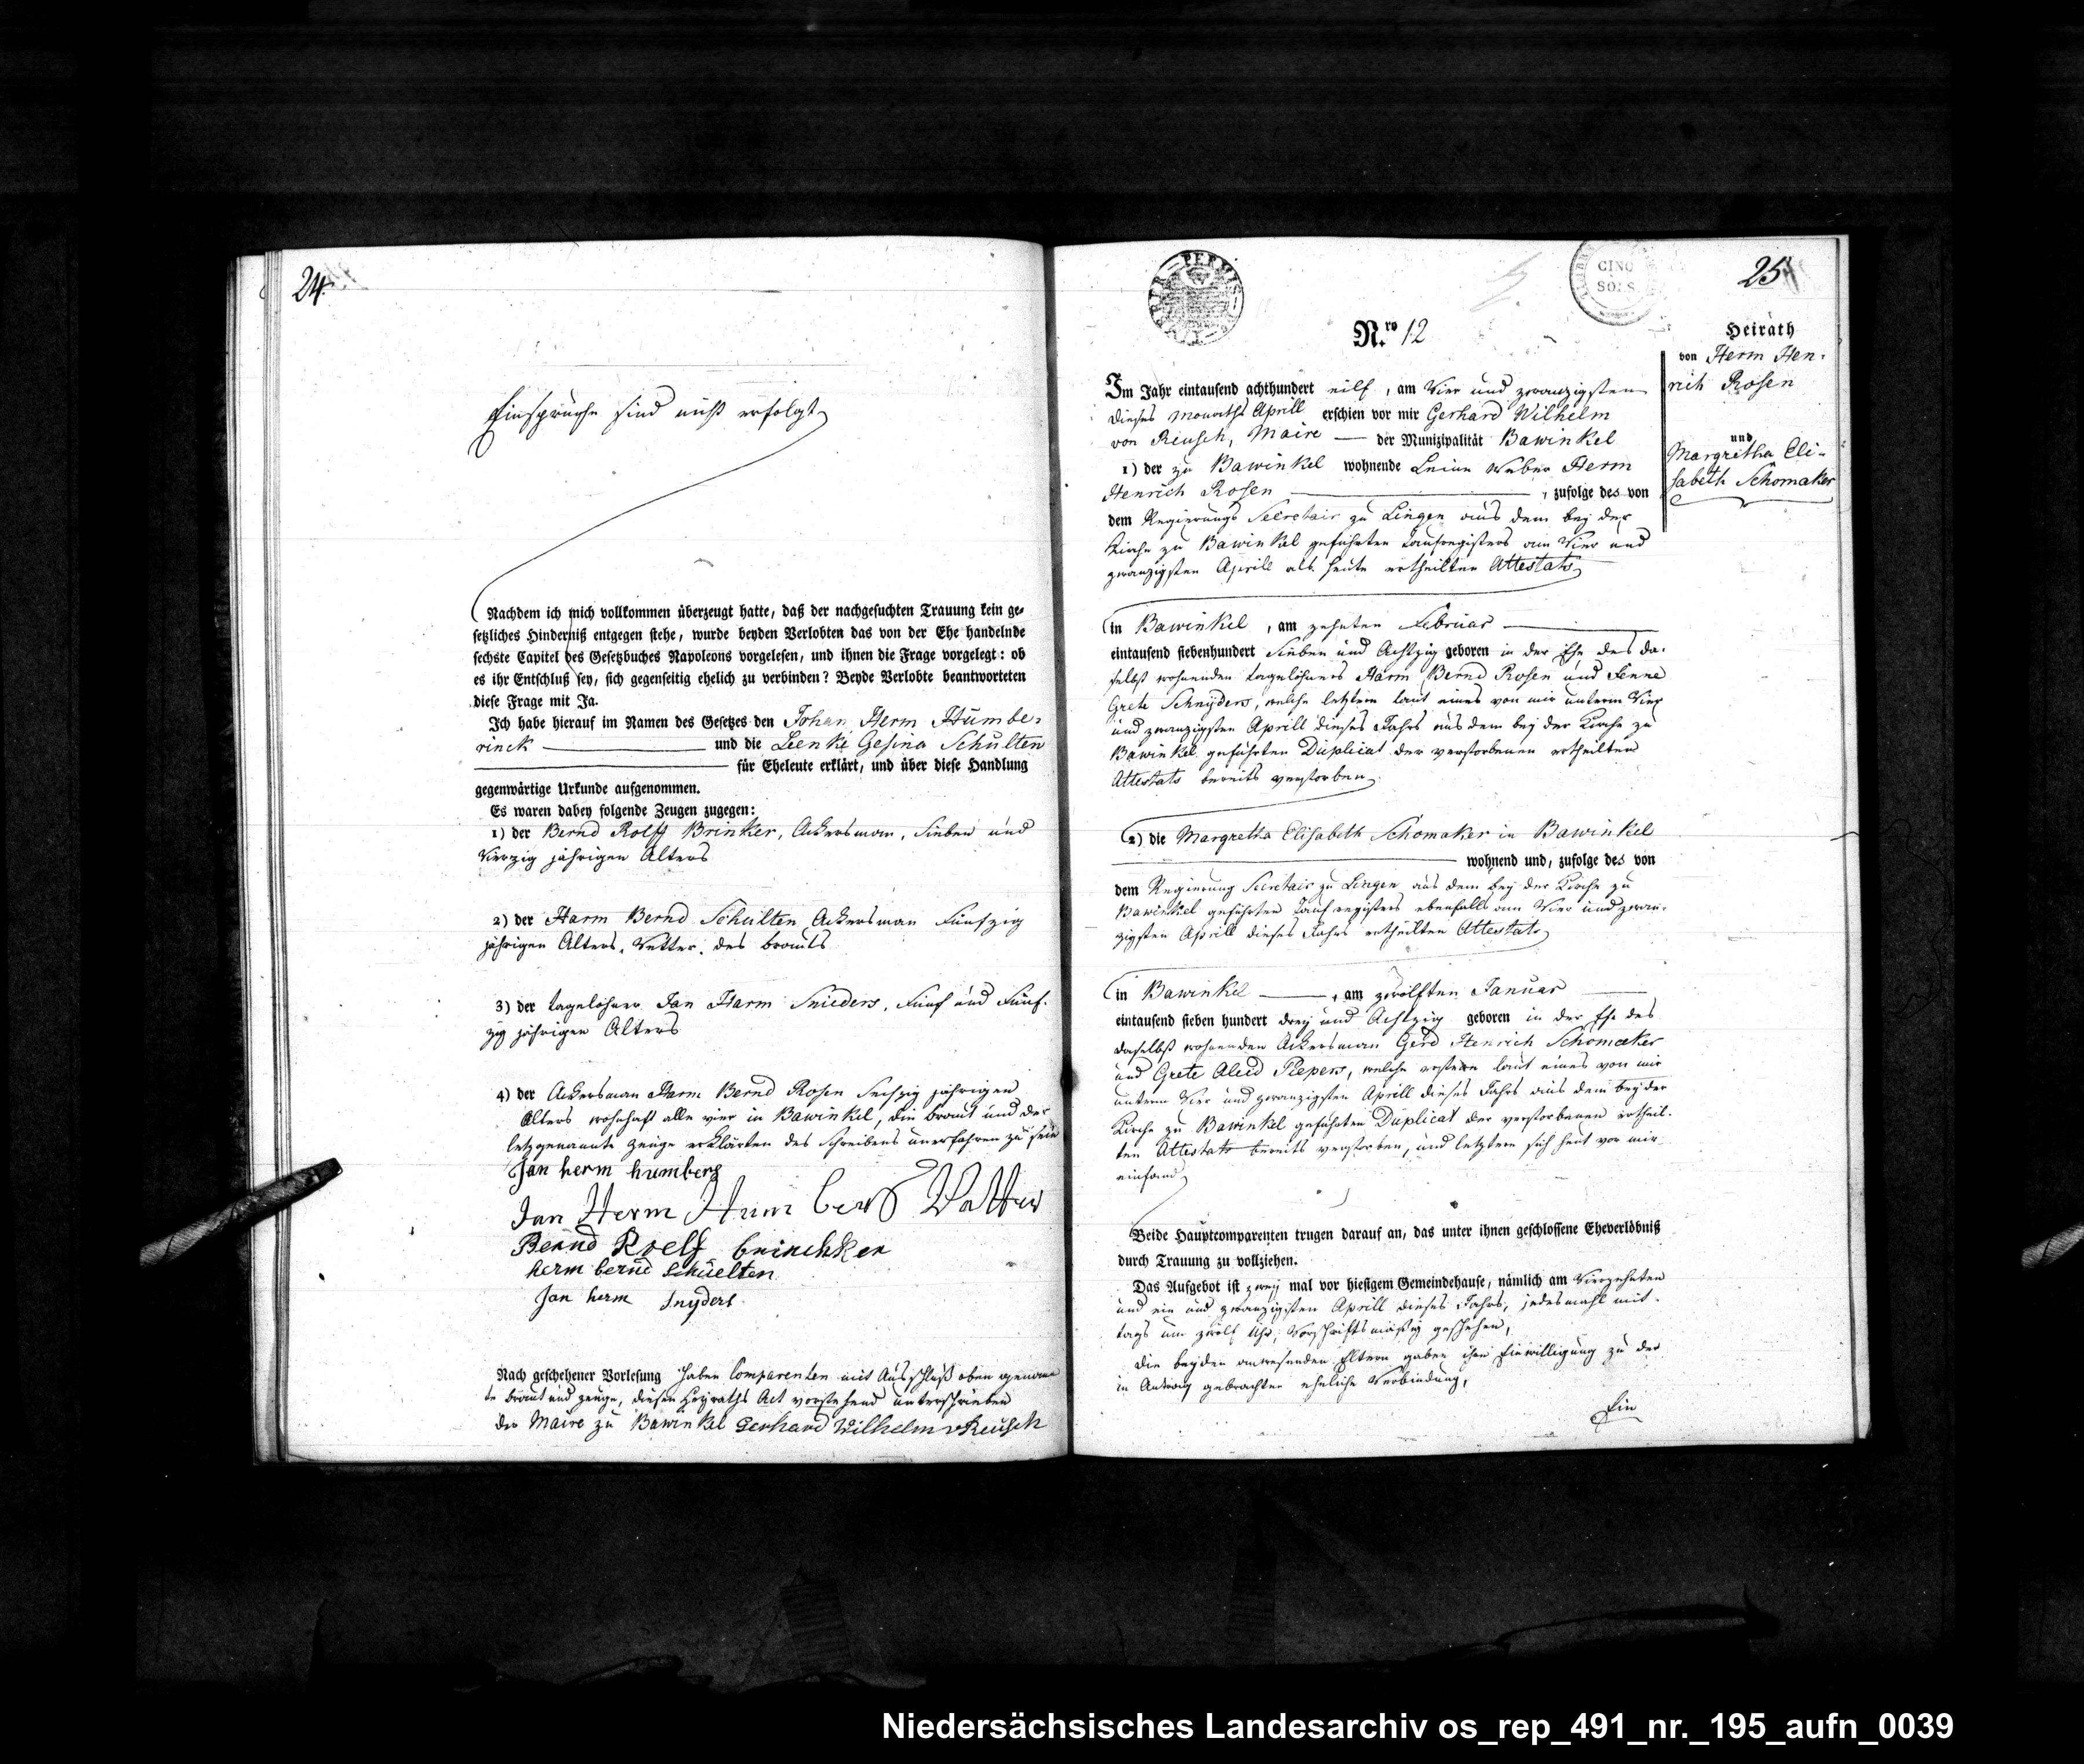 24.
Einsprüche sind nicht erfolgt
Nachdem ich mich vollkommen überzeugt hatte, daß der nachgesuchten Trauung kein ge-
setzliches Hinderniß entgegen stehe, wurde beyden Verlobten das von der Ehe handelnde
sechste Capitel des Gesetzbuches Napoleons vorgelesen, und ihnen die Frage vorgelegt: ob
es ihr Entschluß sey, sich gegenseitig ehelich zu verbinden? Beyde Verlobte beantworteten
diese Frage mit Ja.
Ich habe hierauf im Namen des Gesetzes den Johan Herm Humbe-
rinck und die Leenke Gesina Schulten
für Eheleute erklärt, und über diese Handlung
gegenwärtige Urkunde aufgenommen.
Es waren dabey folgende Zeugen zugegen:
1) der Bernd Rolff Brinker, Ackersman, Sieben und
Vierzig jährigen Alters
2) der Harm Bernd Schulten Ackersman Fünfzig
jährigen Alters, Vetter des brauts
3) der tagelöhner Jan Harm Snieders, Fünf und Fünf-
zig jährigen Alters
4) der Ackersman Harm Bernd Rosen Sechzig jährigen
Alters wohnhaft alle vier in Bawinkel, die braut und der
letzgenannte zeuge erklärten des schreibens unerfahren zu sein
Jan herm humberg
Jan Herm Hum berg Vatter
Bernd Roelf brinchker
herm bernd schuelten
Jan herm snyders
Nach geschehener Vorlesung haben Comparenten mit Ausschluß oben genan
te braut und zeuge, diesen Heyraths Act vorstehend unterschrieben
der Maire zu Bawinkel Gerhard Wilhelm v Reusch
PERMIS
CINQ
SOLS
25
Nro 12
Heirath
von Herm Hen-
rich Rosen
und
Margretha Eli-
sabeth Schomaker
Im Jahr eintausend achthundert eilf, am Vier und zwanzigsten
dieses monaths Aprill erschien vor mir Gerhard Wilhelm
von Reusch, Maire der Munizipalität Bawinkel
1) der zu Bawinkel wohnende Leine Weber Herm
Henrich Rosen, zufolge des von
dem Regierungs Secretair zu Lingen aus dem bej der
Kirche zu Bawinkel geführten taufregisters am Vier und
zwanzigsten Aprill als heute ertheilten Attestats
in Bawinkel, am zehnten Februar
eintausend siebenhundert Sieben und Achtzig geboren in der Ehe des da-
selbst wohnenden tagelöhners Harm Bernd Rosen und Fenne
Grete Schnyders, welche letztere laut eines von mir unterm Vier
und zwanzigsten Aprill dieses Jahrs aus dem bej der Kirche zu
Bawinkel geführten Duplicat der verstorbenen ertheilten
Attestats bereits verstorben
2) die Margretha Elisabeth Schomaker in Bawinkel
wohnend und, zufolge des von
dem Regierung Secretair zu Lingen aus dem bej der Kirche zu
Bawinkel geführten Taufregisters ebenfalls am Vier und zwan-
zigsten Aprill dieses Jahrs ertheilten Attestats
in Bawinkel, am zwölften Januar
eintausend sieben hundert drey und Achtzig geboren in der Ehe des
daselbst wohnenden Ackersman Gerd Henrich Schomaker
und Grete Aleid Piepers, welche erstere laut eines von mir
unterm Vier und zwanzigsten Aprill dieses Jahrs aus dem bey der
Kirche zu Bawinkel geführten Duplicat der verstorbenen ertheil-
ten Attestats bereits verstorben, und letztere sich heut vor mir
einfand
Beide Hauptcomparenten trugen darauf an, das unter ihnen geschlossene Eheverlöbniß
durch Trauung zu vollziehen.
Das Aufgebot ist zweij mal vor hiesigem Gemeindehause, nämlich am Vierzehnten
und ein und zwanzigsten Aprill dieses Jahrs, jedesmahl mit-
tags um zwölf Uhr, Vorschriftsmäßig geschehen,
die beyden anwesenden Eltern gaben ihre Einwilligung zu der
in Antrag gebrachten eheliche Verbindung,
Ein
Niedersächsisches Landesarchiv os_rep_491_nr._195_aufn_0039